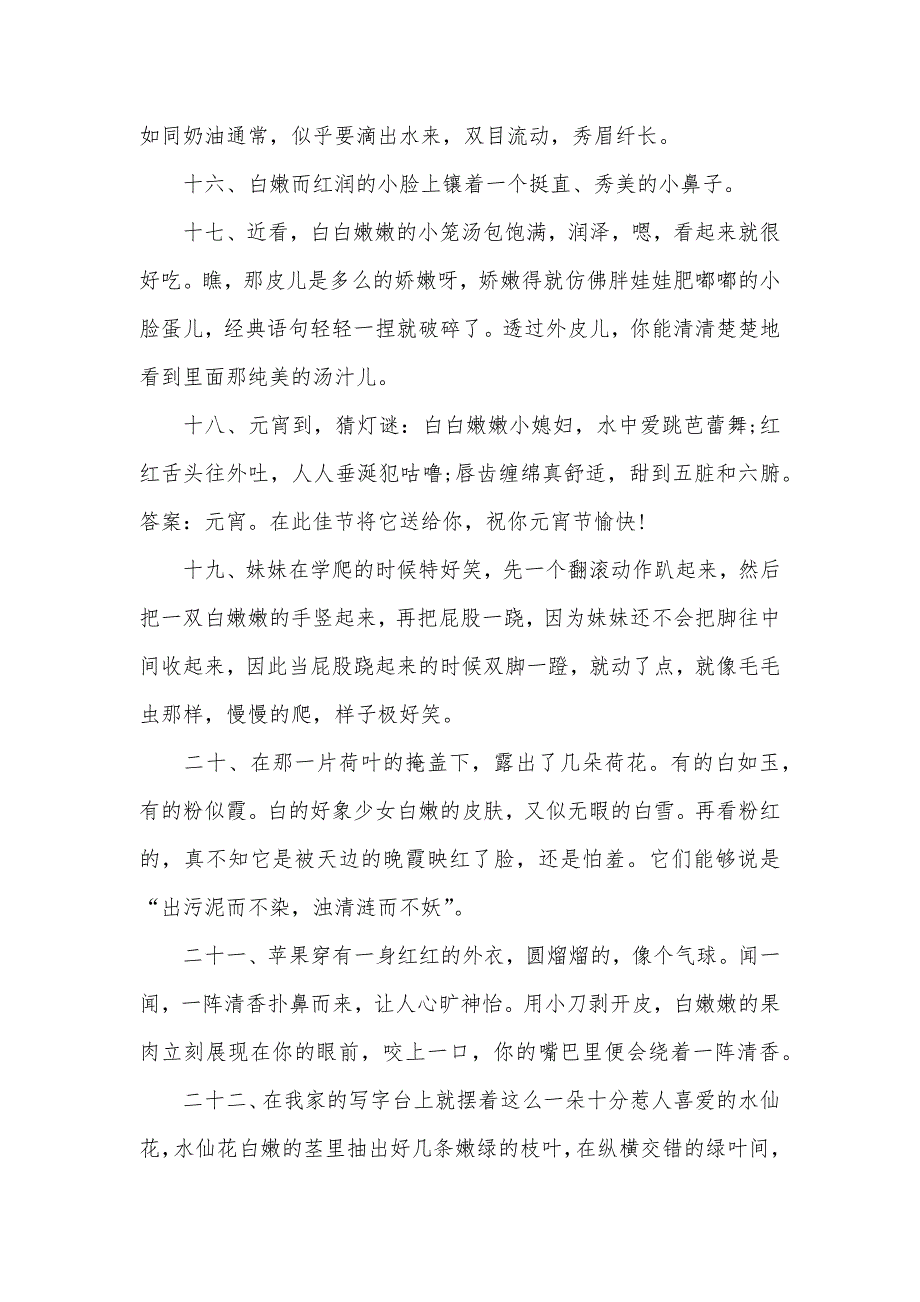 如同奶油通常，似乎要滴出水来，双目流动，秀眉纤长。
十六、白嫩而红润的小脸上镶着一个挺直、秀美的小鼻子。
十七、近看，白白嫩嫩的小笼汤包饱满，润泽，嗯，看起来就很
好吃。瞧，那皮儿是多么的娇嫩呀，娇嫩得就仿佛胖娃娃肥嘟嘟的小
脸蛋儿，经典语句轻轻一捏就破碎了。透过外皮儿，你能清清楚楚地
看到里面那纯美的汤汁儿。
十八、元宵到，猜灯谜：白白嫩嫩小媳妇，水中爱跳芭蕾舞;红
红舌头往外吐，人人垂涎犯咕噜;唇齿缠绵真舒适，甜到五脏和六腑。
答案：元宵。在此佳节将它送给你，祝你元宵节愉快!
十九、妹妹在学爬的时候特好笑，先一个翻滚动作趴起来，然后
把一双白嫩嫩的手竖起来，再把屁股一跷，因为妹妹还不会把脚往中
间收起来，因此当屁股跷起来的时候双脚一蹬，就动了点，就像毛毛
虫那样，慢慢的爬，样子极好笑。
二十、在那一片荷叶的掩盖下，露出了几朵荷花。有的白如玉，
有的粉似霞。白的好象少女白嫩的皮肤，又似无暇的白雪。再看粉红
的，真不知它是被天边的晚霞映红了脸，还是怕羞。它们能够说是
“出污泥而不染，浊清涟而不妖”。
二十一、苹果穿有一身红红的外衣，圆熘熘的，像个气球。闻一
闻，一阵清香扑鼻而来，让人心旷神怡。用小刀剥开皮，白嫩嫩的果
肉立刻展现在你的眼前，咬上一口，你的嘴巴里便会绕着一阵清香。
二十二、在我家的写字台上就摆着这么一朵十分惹人喜爱的水仙
花，水仙花白嫩的茎里抽出好几条嫩绿的枝叶，在纵横交错的绿叶间，